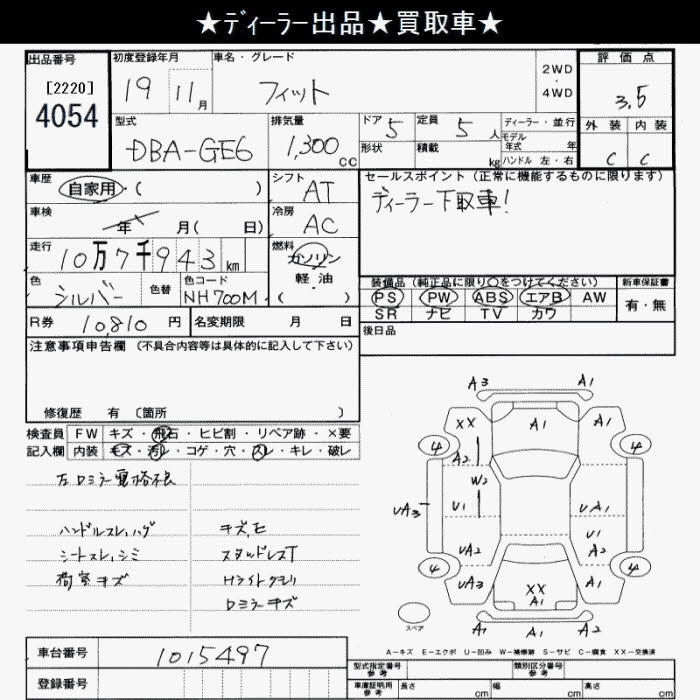 ★ディーラー出品★買取車★
出品番号 初度登録年月 車名・グレード 評価点
[2220] 4054
19 11月 フィット 2WD・4WD 3.5
型式 排気量 ドア 5 定員 5人 ディーラー・並行 外装 内装
DBA-GE6 1,300cc 形状 積載 kg モデル年式 年 ハンドル 左・右 C C
車歴 自家用・( ) シフト AT セールスポイント (正常に機能するものに限ります)
車検 年 月( 日) 冷房 AC ディーラー下取車!
走行 10万7千943km 燃料 ガソリン 軽・油 ( )
色 シルバー 色替 色コード NH700M
装備品 (純正品に限り○をつけてください) 新車保証書
PS PW ABS エアB AW 有・無
SR ナビ TV カワ
R券 10,810円 名変期限 月 日 後日品
注意事項申告欄 (不具合内容等は具体的に記入して下さい)
修復歴 有 〔箇所 〕
検査員 FW キズ・飛石・ヒビ割・リペア跡・×要
記入欄 内装 キズ・汚レ・コゲ・穴・スレ・キレ・破レ
左ドミラー電格不良
ハンドルスレ,ハゲ キズ,セ
シートスレ,シミ スタッドレスT
荷室キズ Hライトクモリ
ドミラーキズ
A3 A1
XX A1 A1
4 4
A2
W2
UA3 U1 UA1
U1
UA2 A2
4 4
UA3 XX A1 A1
スペア
A1 A1 A2
A-キズ E-エクボ U-凹み W-補修跡 S-サビ C-腐食 XX-交換済
車台番号 1015497
型式指定番号 参考 類別区分番号 参考
登録番号 車庫証明用 参考 長さ cm 幅 cm 高さ cm